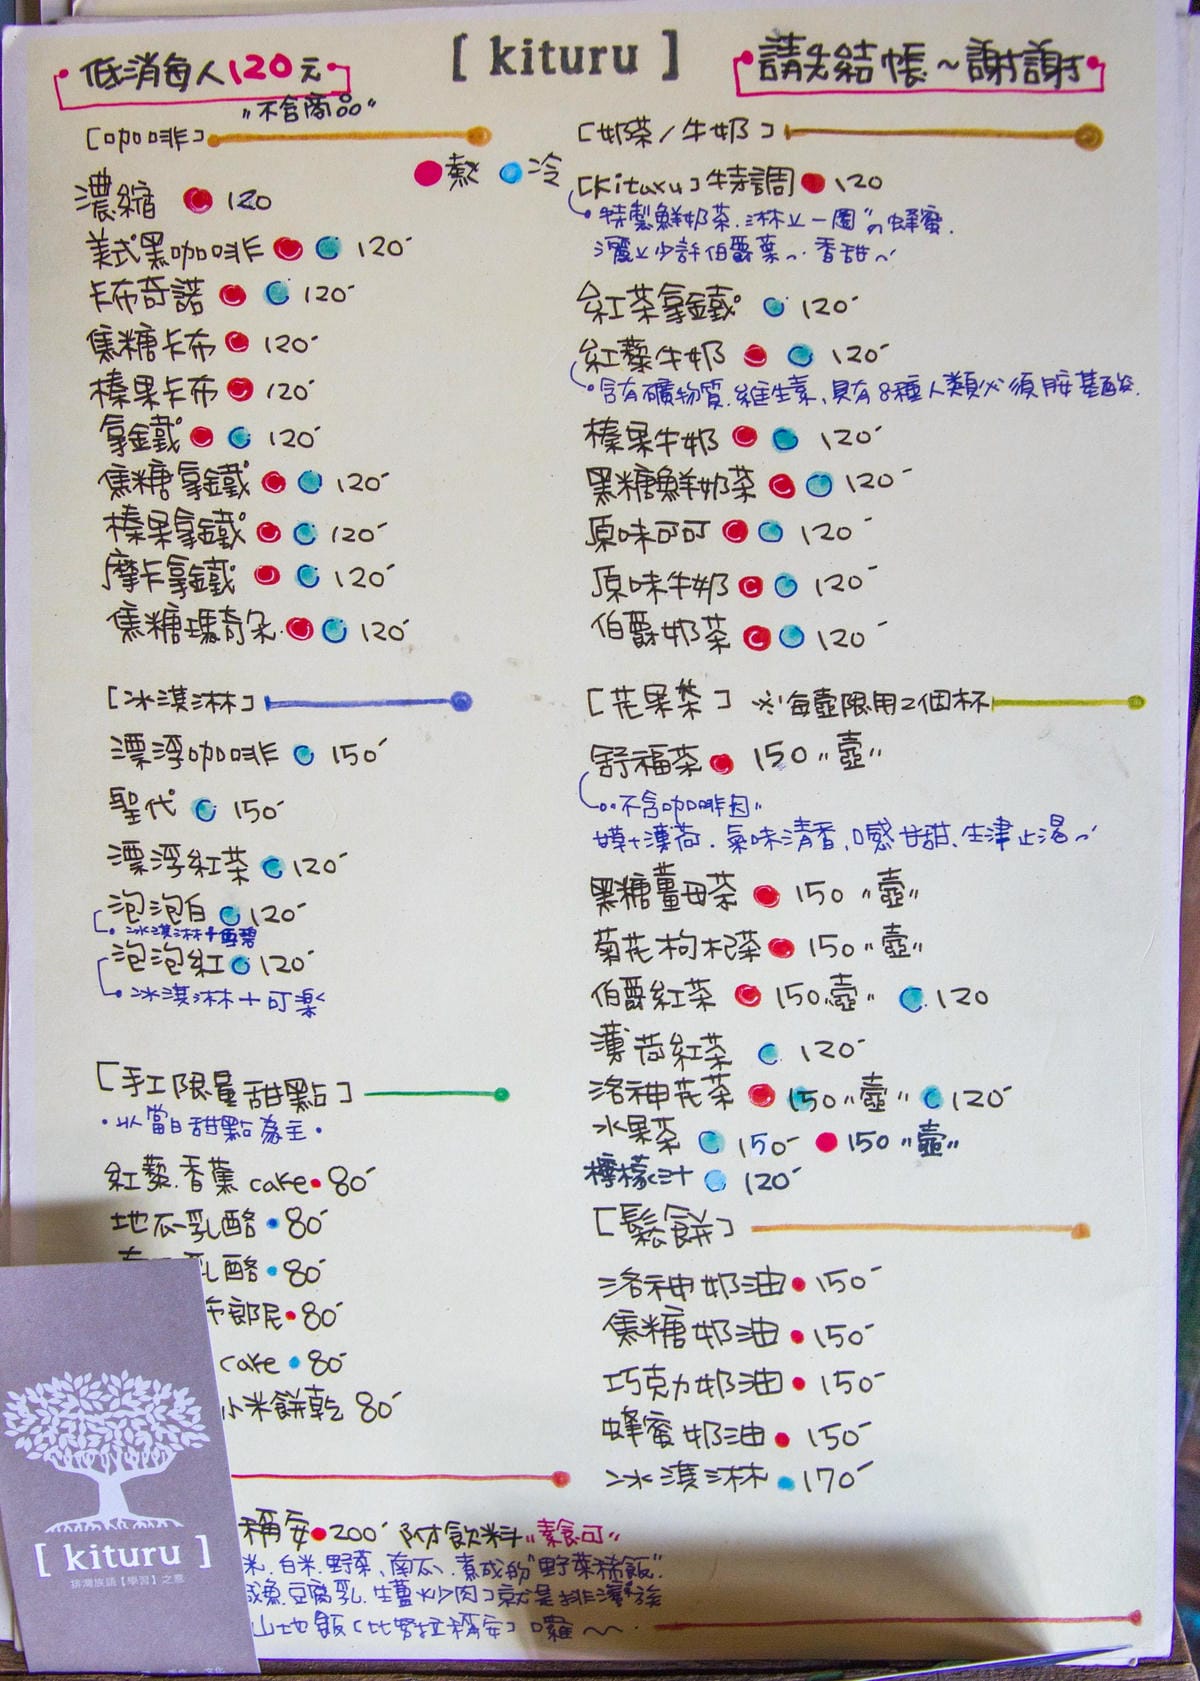 低消每人120元
"不含商品"
[ kituru ]
請先結帳~謝謝
[咖啡]
熱 冷
濃縮 120
美式黑咖啡 120
卡布奇諾 120
焦糖卡布 120
榛果卡布 120
拿鐵 120
焦糖拿鐵 120
榛果拿鐵 120
摩卡拿鐵 120
焦糖瑪奇朵 120
[冰淇淋]
漂浮咖啡 150
聖代 150
漂浮紅茶 120
泡泡白 120
冰淇淋+雪碧
泡泡紅 120
冰淇淋+可樂
[手工限量甜點]
·以當日甜點為主·
紅藜.香蕉 cake 80
地瓜乳酪 80
乳酪 80
布郎尼 80
cake 80
小米餅乾 80
[奶茶/牛奶]
[Kituru]特調 120
特製鮮奶茶.淋上一圈"的蜂蜜.
灑上少許伯爵葉~.香甜~
紅茶拿鐵 120
紅藜牛奶 120
含有礦物質.維生素、具有8種人類必須胺基酸.
榛果牛奶 120
黑糖鮮奶茶 120
原味可可 120
原味牛奶 120
伯爵奶茶 120
[花果茶] ※每壺限用2個杯
舒福茶 150 "壺"
不含咖啡因"
+薄荷.氣味清香,口感甘甜、生津止渴~
黑糖薑母茶 150 "壺"
菊花枸杞茶 150 "壺"
伯爵紅茶 150"壺" 120
薄荷紅茶 120
洛神花茶 150"壺" 120
水果茶 150 150"壺"
檸檬汁 120
[鬆餅]
洛神奶油 150
焦糖奶油 150
巧克力奶油 150
蜂蜜奶油 150
冰淇淋 170
稱安 200 附飲料"素食可"
米.白米.野菜、南瓜.煮成的"野菜稀飯"
鹹魚.豆腐乳.生薑炒肉]就是排灣族
山地飯(比努拉稱安)囉~~.
[ kituru ]
排灣族語【學習】之意